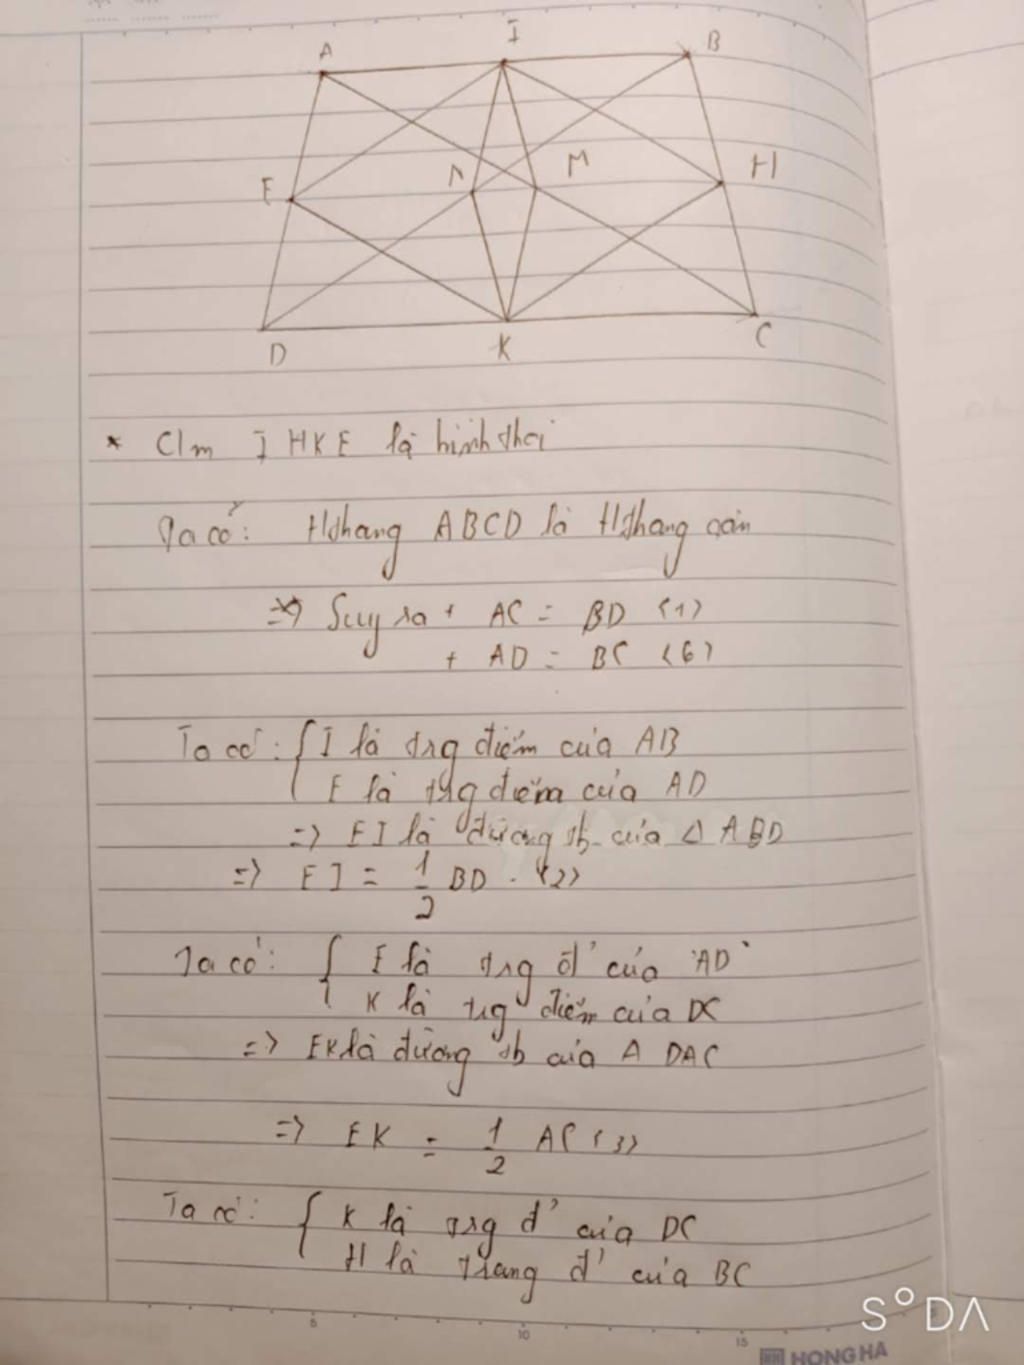 A I B
E N M H
D K C
* C/m IHKE là hình thoi
Ta có: Hthang ABCD là Hthang cân
=> Suy ra + AC = BD (1)
+ AD = BC (6)
Ta có: { I là trg điểm của AB
E là trg điểm của AD
=> EI là đường tb của Δ ABD
=> EI = 1/2 BD. (2)
Ta có: { E là trg đ' của AD
K là trg điểm của DC
=> EK là đường tb của Δ DAC
=> EK = 1/2 AC (3)
Ta có: { K là trg đ' của DC
H là trung đ' của BC
5 10 15
HONG HA
SODA